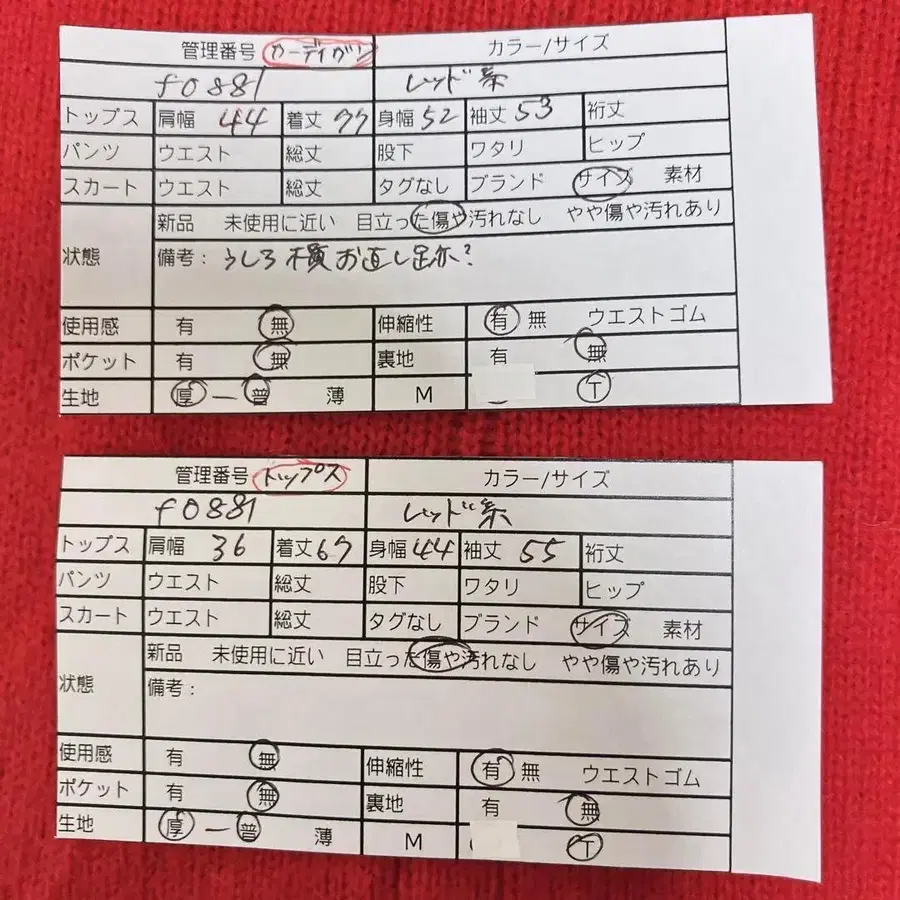 管理番号 カーディガン カラー/サイズ
f0881 レッド系
トップス 肩幅 44 着丈 77 身幅 52 袖丈 53 裄丈
パンツ ウエスト 総丈 股下 ワタリ ヒップ
スカート ウエスト 総丈 タグなし ブランド サイズ 素材
新品 未使用に近い 目立った傷や汚れなし やや傷や汚れあり
状態 備考：うしろ横お直し跡?
使用感 有 無 伸縮性 有 無 ウエストゴム
ポケット 有 無 裏地 有 無
生地 厚 ー 普 薄 M T
管理番号 トップス カラー/サイズ
f0881 レッド系
トップス 肩幅 36 着丈 67 身幅 44 袖丈 55 裄丈
パンツ ウエスト 総丈 股下 ワタリ ヒップ
スカート ウエスト 総丈 タグなし ブランド サイズ 素材
新品 未使用に近い 目立った傷や汚れなし やや傷や汚れあり
状態 備考：
使用感 有 無 伸縮性 有 無 ウエストゴム
ポケット 有 無 裏地 有 無
生地 厚 ー 普 薄 M T